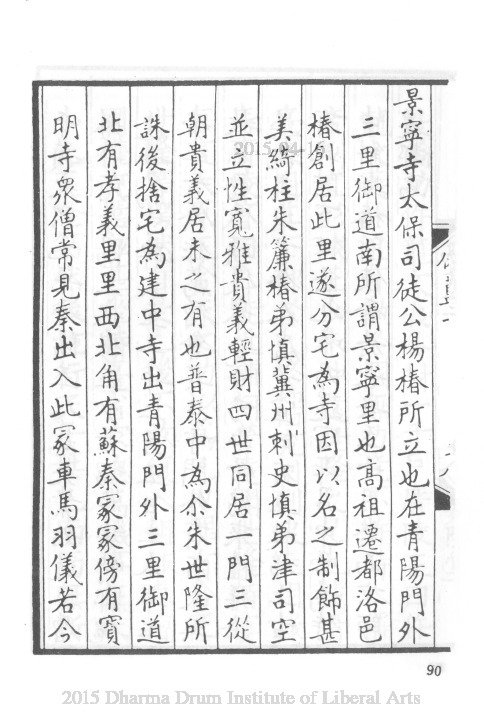 景寧寺太保司徒公楊椿所立也在青陽門外
三里御道南所謂景寧里也高祖遷都洛邑
椿創居此里遂分宅為寺因以名之制飾甚
美綺柱朱簾椿弟慎冀州刺史慎弟津司空
並立性寬雅貴義輕財四世同居一門三從
朝貴義居未之有也普泰中為尒朱世隆所
誅後捨宅為建中寺出青陽門外三里御道
北有孝義里里西北角有蘇秦冢冢傍有寶
明寺眾僧常見秦出入此冢車馬羽儀若今
90
2015 Dharma Drum Institute of Liberal Arts